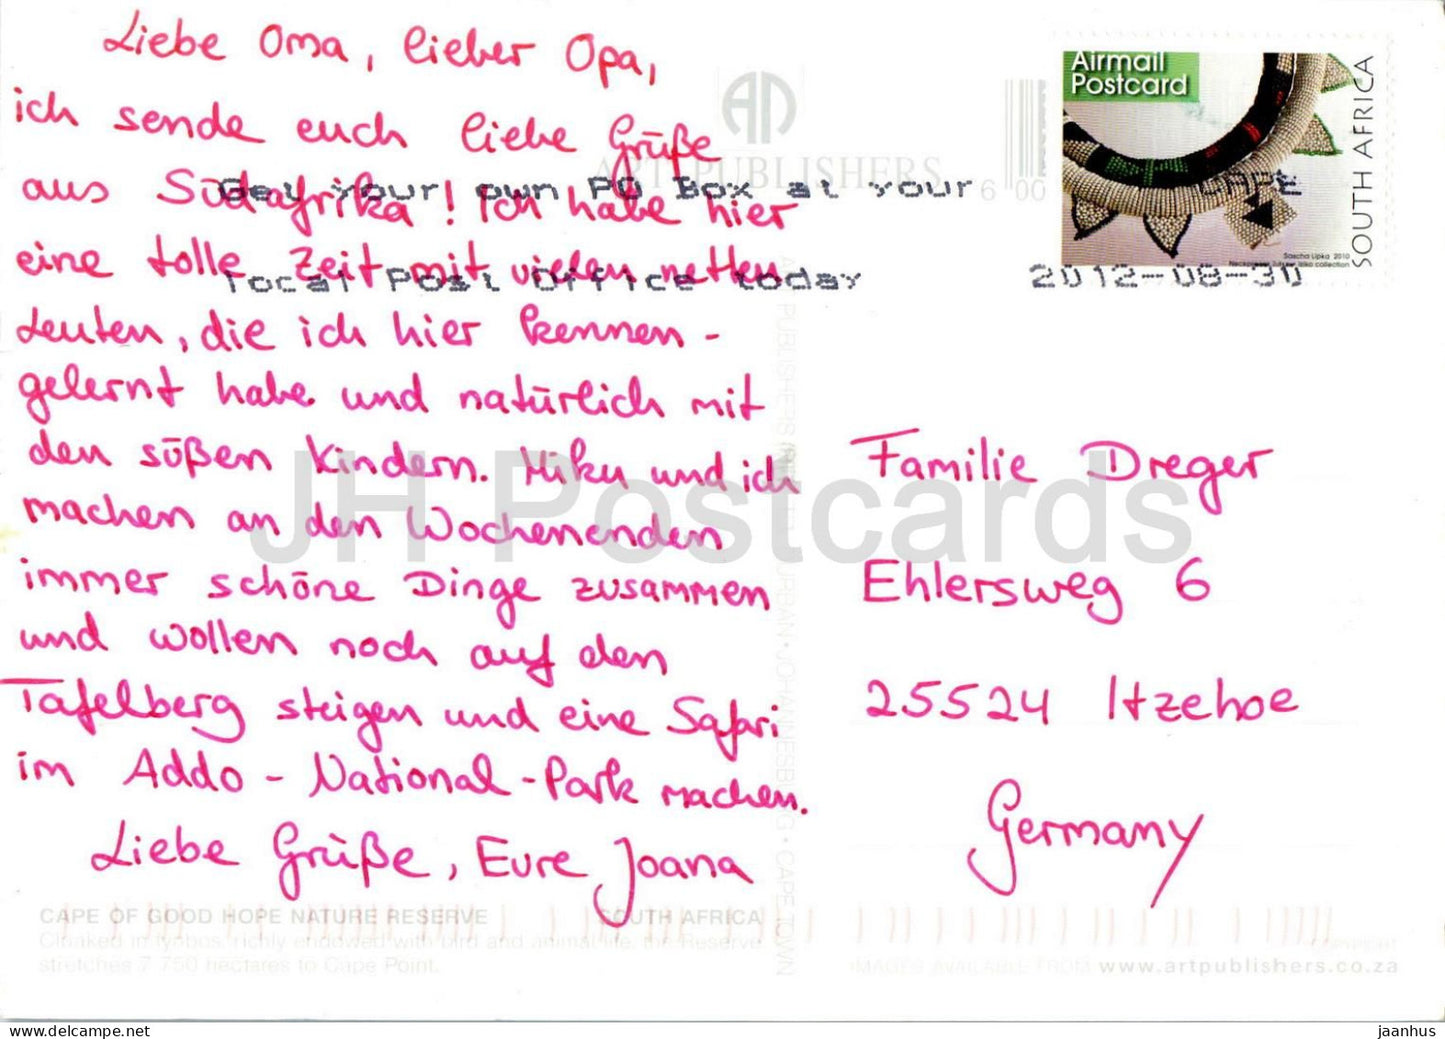 Liebe Oma, lieber Opa,
ich sende euch liebe Grüße
aus Südafrika! Ich habe hier
eine tolle Zeit mit vielen netten
Leuten, die ich hier kennen-
gelernt habe und natürlich mit
den süßen Kindern. Miku und ich
machen an den Wochenenden
immer schöne Dinge zusammen
und wollen noch auf den
Tafelberg steigen und eine Safari
im Addo-National-Park machen.
Liebe Grüße, Eure Joana
CAPE OF GOOD HOPE NATURE RESERVE SOUTH AFRICA
Cloaked in fynbos, richly endowed with bird and animal life, the Reserve
stretches 7 750 hectares to Cape Point.
ART PUBLISHERS
Get your own PO Box at your
local Post Office today
6 00
CAPE
2012-08-30
Airmail
Postcard
SOUTH AFRICA
Sascha Lipka 2010
Familie Dreger
Ehlersweg 6
25524 Itzehoe
Germany
COPYRIGHT
IMAGES AVAILABLE FROM www.artpublishers.co.za
JH Postcards
www.delcampe.net
jaanhus